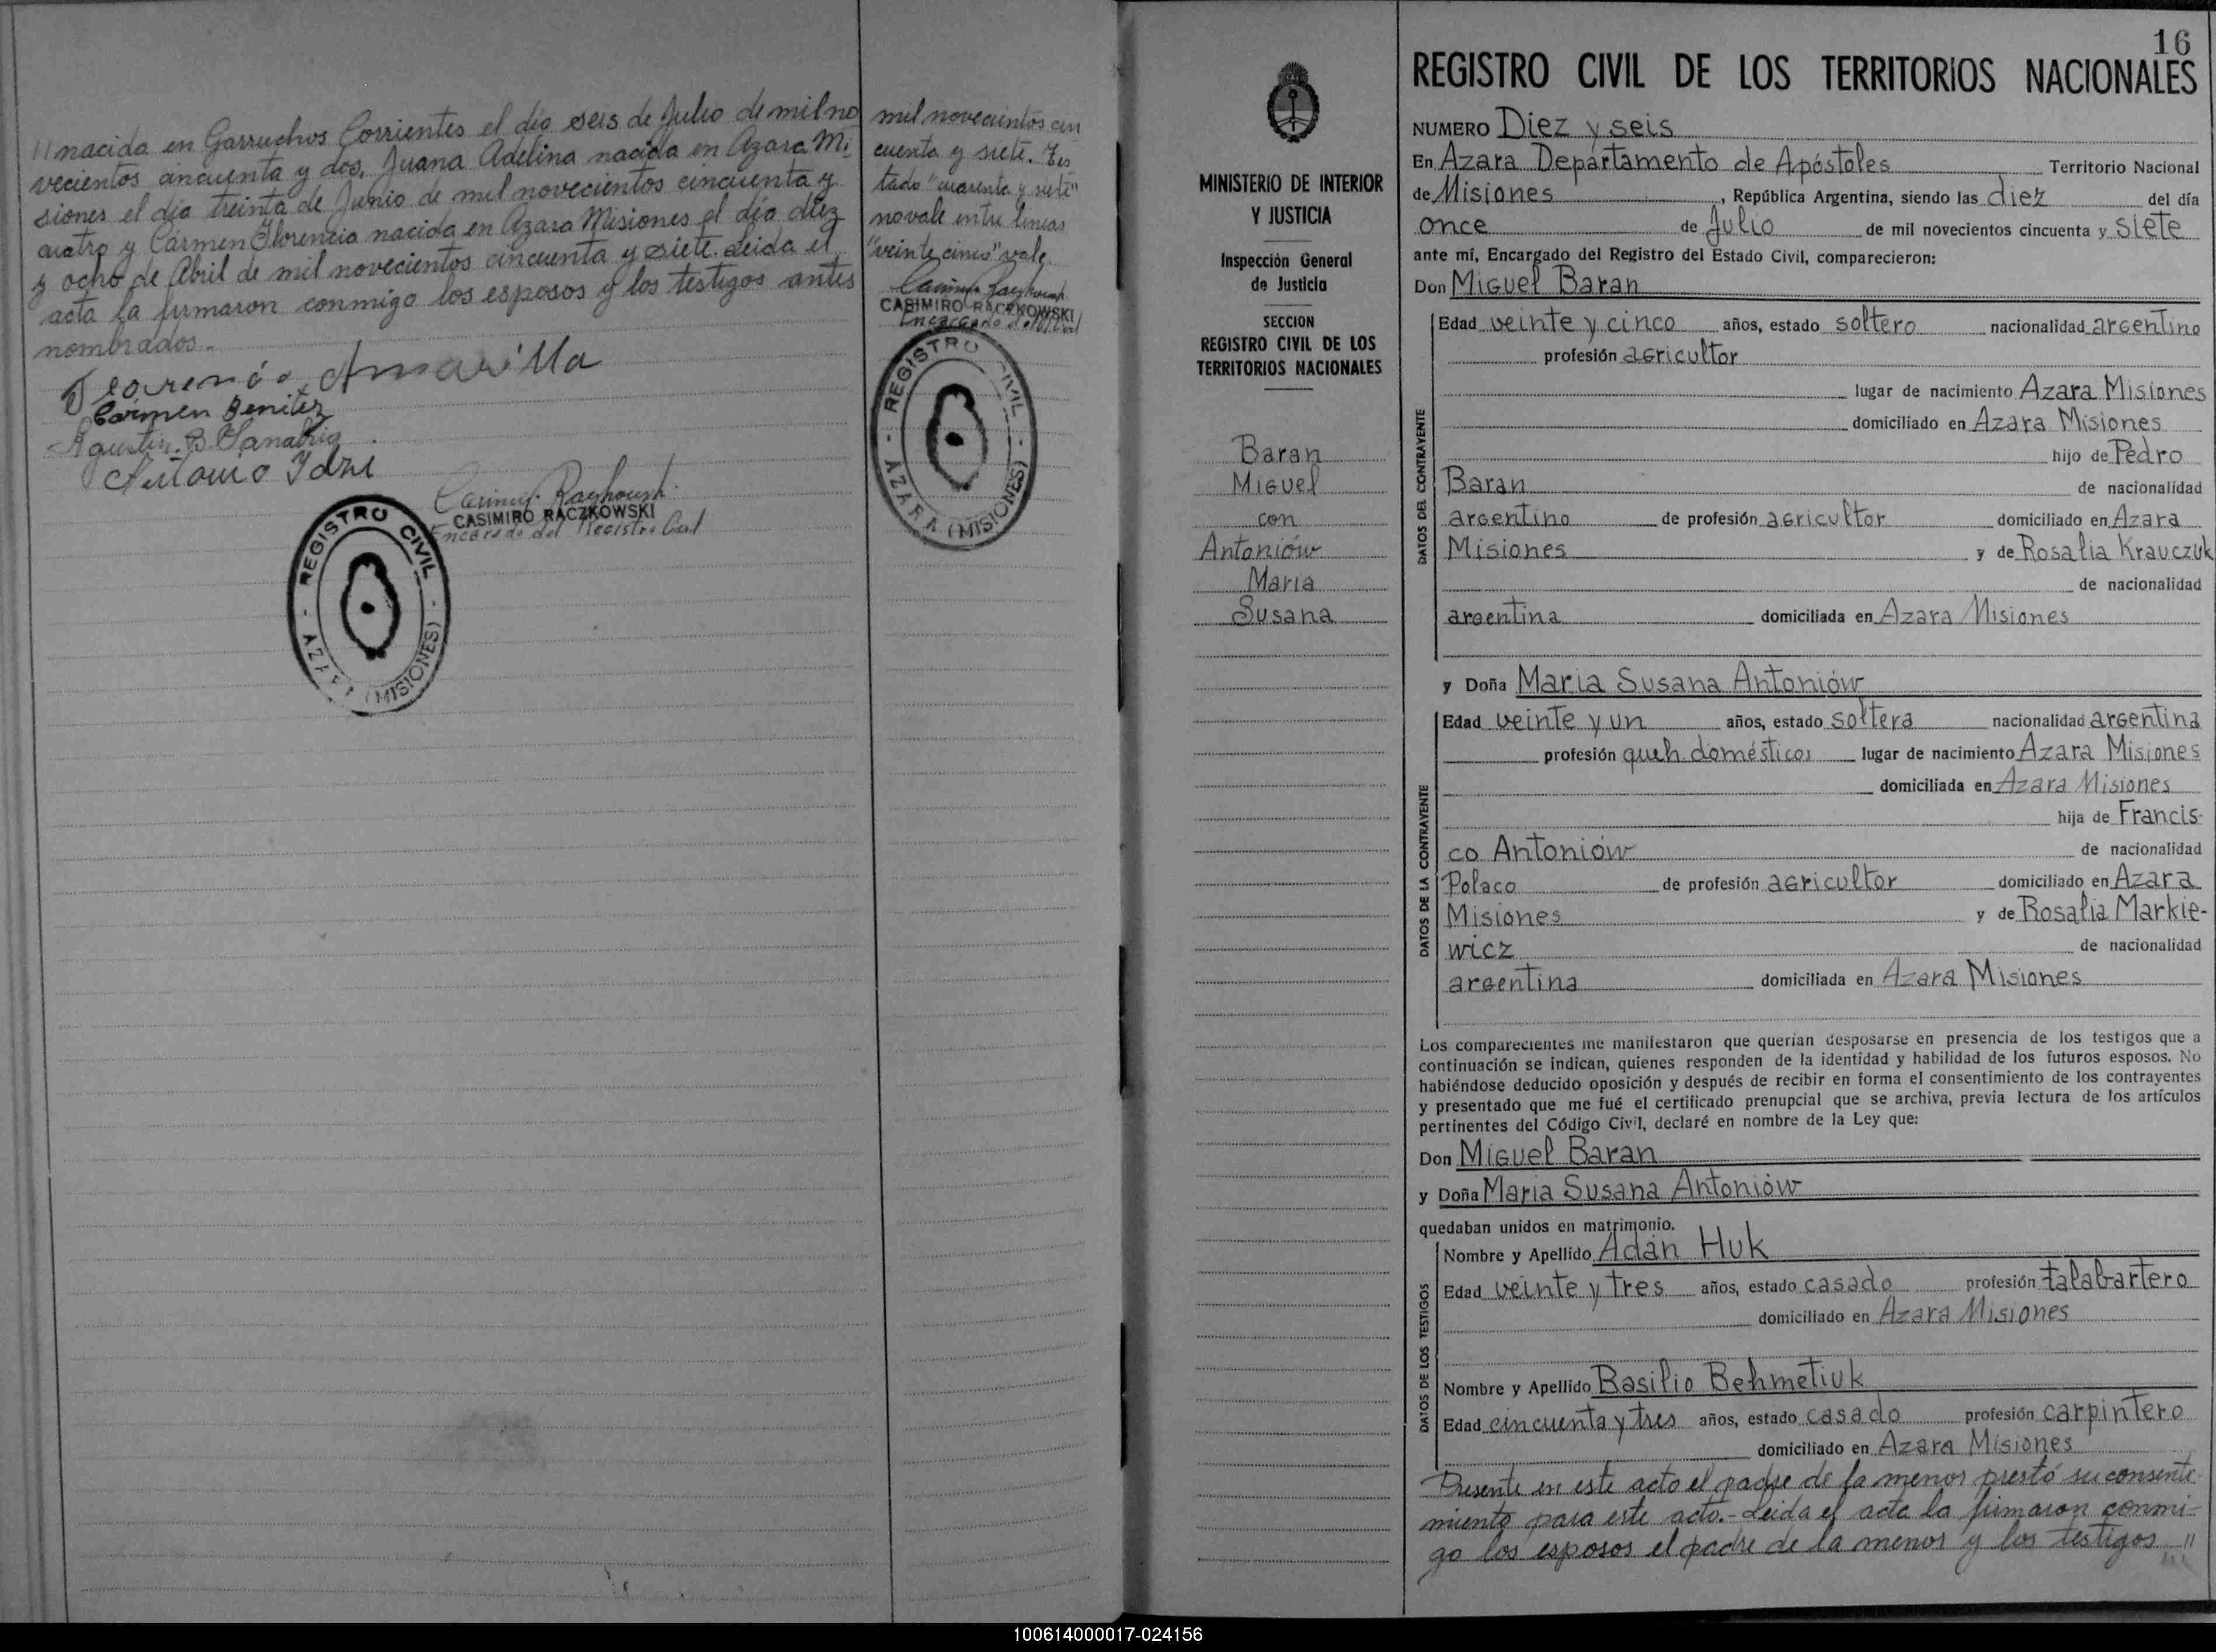 // nacida en Garruchos Corrientes el día seis de Julio de mil no
vecientos cincuenta y dos, Juana Adelina nacida en Azara Mi
siones el día treinta de Junio de mil novecientos cincuenta y
cuatro y Cármen Florencia nacida en Azara Misiones el día diez
y ocho de Abril de mil novecientos cincuenta y siete. Leida el
acta la firmaron conmigo los esposos y los testigos antes
nombrados.-
Amarilla
Carmen Benitez
Agustin B Sanabria
CASIMIRO RACZKOWSKI
Encargado del Registro Civil
- REGISTRO CIVIL -
AZARA (MISIONES)
mil novecientos cin
cuenta y siete. Tes
tado "cuarenta y siete"
no vale entre lineas
"veinte cinco" vale.
CASIMIRO RACZKOWSKI
Encargado del R. Civil
- REGISTRO CIVIL -
AZARA (MISIONES)
MINISTERIO DE INTERIOR
Y JUSTICIA
Inspección General
de Justicia
SECCION
REGISTRO CIVIL DE LOS
TERRITORIOS NACIONALES
Baran
Miguel
con
Antoniów
Maria
Susana
16
REGISTRO CIVIL DE LOS TERRITORIOS NACIONALES
NUMERO Diez y seis
En Azara Departamento de Apóstoles Territorio Nacional
de Misiones, República Argentina, siendo las diez del día
once de Julio de mil novecientos cincuenta y siete
ante mí, Encargado del Registro del Estado Civil, comparecieron:
Don Miguel Baran
DATOS DEL CONTRAYENTE
Edad veinte y cinco años, estado soltero nacionalidad argentino
profesión agricultor
lugar de nacimiento Azara Misiones
domiciliado en Azara Misiones
hijo de Pedro
Baran de nacionalidad
argentino de profesión agricultor domiciliado en Azara
Misiones y de Rosalia Krauczuk
de nacionalidad
argentina domiciliada en Azara Misiones
y Doña Maria Susana Antoniów
DATOS DE LA CONTRAYENTE
Edad veinte y un años, estado soltera nacionalidad argentina
profesión queh. domésticos lugar de nacimiento Azara Misiones
domiciliada en Azara Misiones
hija de Francis-
co Antoniów de nacionalidad
Polaco de profesión agricultor domiciliado en Azara
Misiones y de Rosalia Markie-
wicz de nacionalidad
argentina domiciliada en Azara Misiones
Los comparecientes me manifestaron que querían desposarse en presencia de los testigos que a
continuación se indican, quienes responden de la identidad y habilidad de los futuros esposos. No
habiéndose deducido oposición y después de recibir en forma el consentimiento de los contrayentes
y presentado que me fué el certificado prenupcial que se archiva, previa lectura de los artículos
pertinentes del Código Civil, declaré en nombre de la Ley que:
Don Miguel Baran
y Doña Maria Susana Antoniów
quedaban unidos en matrimonio.
DATOS DE LOS TESTIGOS
Nombre y Apellido Adán Huk
Edad veinte y tres años, estado casado profesión talabartero
domiciliado en Azara Misiones
Nombre y Apellido Basilio Behmetiuk
Edad cincuenta y tres años, estado casado profesión carpintero
domiciliado en Azara Misiones
Presente en este acto el padre de la menor prestó su consenti-
miento para este acto.- Leida el acta la firmaron conmi-
go los esposos el padre de la menor y los testigos //
100614000017-024156